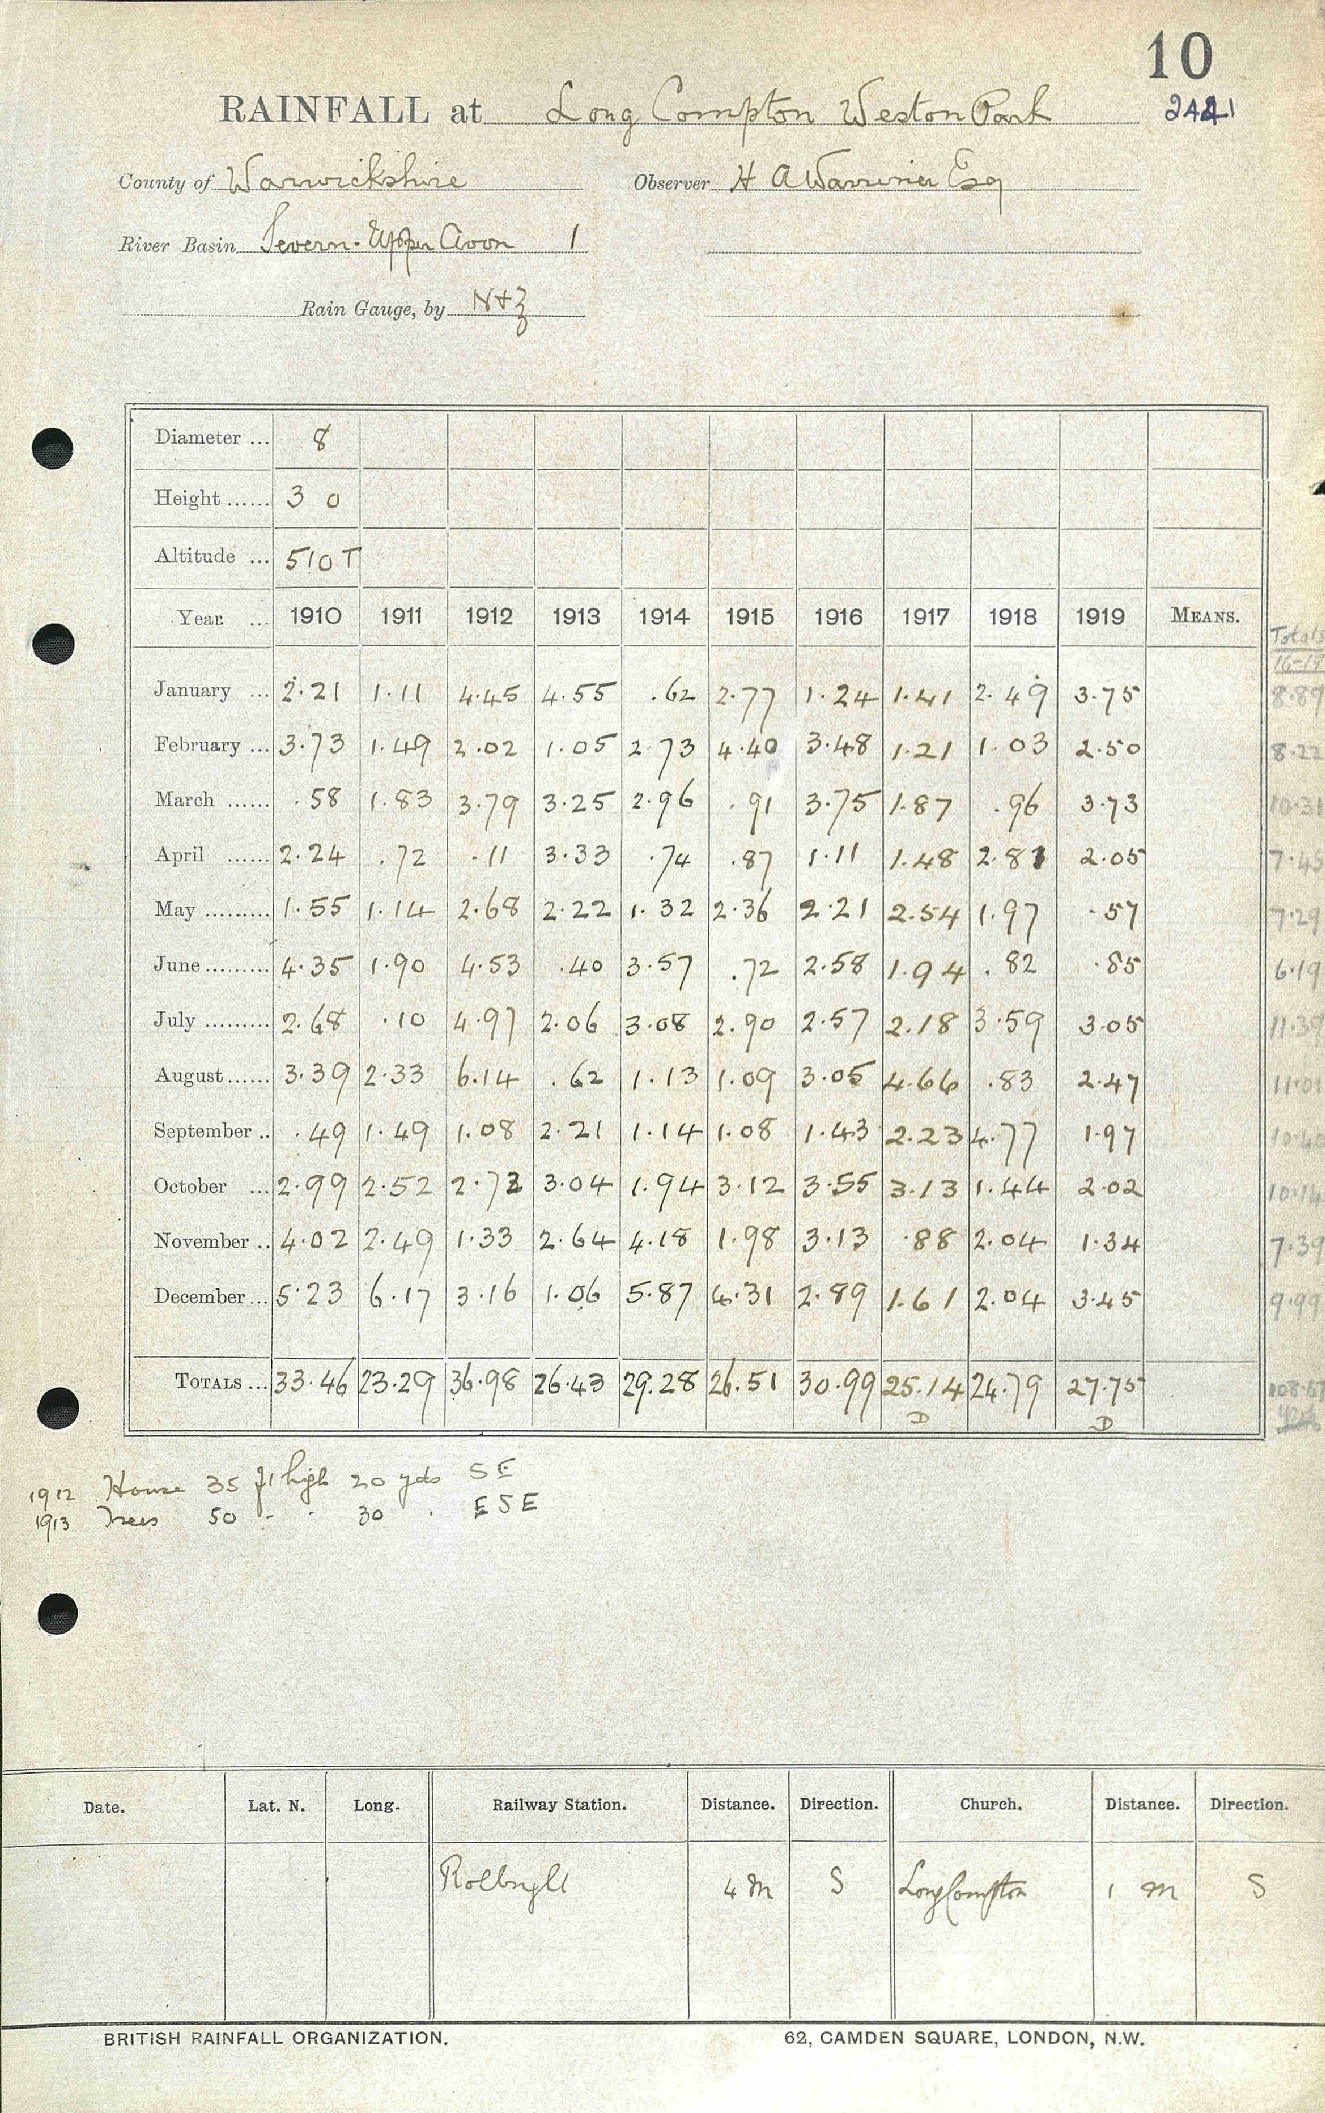 10
RAINFALL at Long Compton Weston Park 2421
County of Warwickshire Observer H A Warriner Esq
River Basin Severn. Upper Avon 1
Rain Gauge, by N+Z
Diameter ... 8
Height ...... 3 0
Altitude ... 510 T
Year ... 1910 1911 1912 1913 1914 1915 1916 1917 1918 1919 MEANS. Totals
16-19
January ... 2.21 1.11 4.45 4.55 .62 2.77 1.24 1.41 2.49 3.75 8.89
February ... 3.73 1.49 2.02 1.05 2.73 4.40 3.48 1.21 1.03 2.50 8.22
March ...... .58 1.83 3.79 3.25 2.96 .91 3.75 1.87 .96 3.73 10.31
April ...... 2.24 .72 .11 3.33 .74 .87 1.11 1.48 2.81 2.05 7.45
May ......... 1.55 1.14 2.68 2.22 1.32 2.36 2.21 2.54 1.97 .57 7.29
June ......... 4.35 1.90 4.53 .40 3.57 .72 2.58 1.94 .82 .85 6.19
July ......... 2.68 .10 4.97 2.06 3.08 2.90 2.57 2.18 3.59 3.05 11.39
August ...... 3.39 2.33 6.14 .62 1.13 1.09 3.05 4.66 .83 2.47 11.01
September .. .49 1.49 1.08 2.21 1.14 1.08 1.43 2.23 4.77 1.97 10.40
October ... 2.99 2.52 2.72 3.04 1.94 3.12 3.55 3.13 1.44 2.02 10.14
November .. 4.02 2.49 1.33 2.64 4.18 1.98 3.13 .88 2.04 1.34 7.39
December ... 5.23 6.17 3.16 1.06 5.87 4.31 2.89 1.61 2.04 3.45 9.99
TOTALS ... 33.46 23.29 36.98 26.43 29.28 26.51 30.99 25.14 24.79 27.75 108.67
D D
1912 House 35 ft high 20 yds SE
1913 Trees 50 " " 30 " ESE
Date. Lat. N. Long. Railway Station. Distance. Direction. Church. Distance. Direction.
Rollright 4 m S Long Compton 1 m S
BRITISH RAINFALL ORGANIZATION. 62, CAMDEN SQUARE, LONDON, N.W.